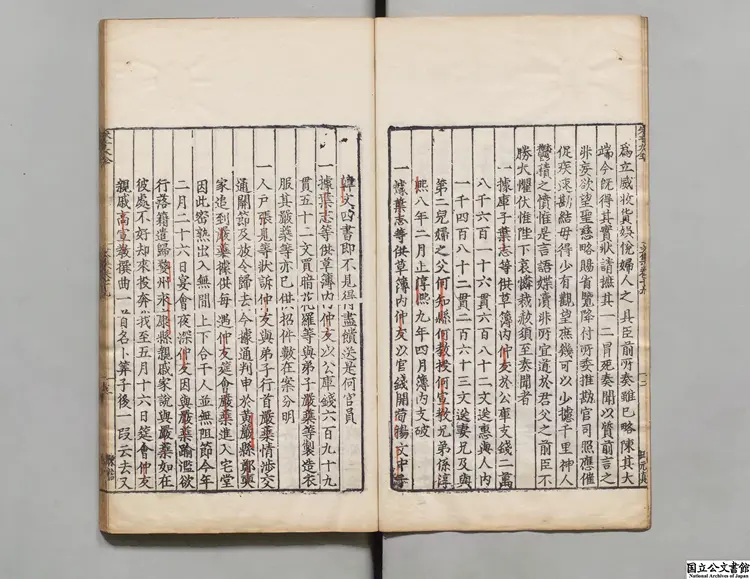 為立威收貨娛悅婦人之具臣前所奏雖已略陳其大
端今既得其實狀請摭其一二冒死奏聞以質前言之
非妄欲望聖慈略賜省覽降付所奏推勘官司照應催
促疾速勘結毋得少有觀望庶幾可以少攄千里神人
鬱積之憤惟是言語媟瀆非所宜道於君父之前臣不
勝大懼伏惟陛下哀憐裁赦須至奏聞者
一據庫子葉志等供草簿內仲友於公庫支錢二萬
八千六百一十六貫六百八十二文送惠與人內
一千四百八十二貫二百六十三文送妻兄及與
第二兒婦之父何知縣何教授何宣教兄弟係淳
熙八年二月止淳熙九年四月簿內支破
一據葉志等供草簿內仲友以官錢開荀揚文中子
韓文四書即不見得盡饋送是何官員
一據葉志等供草簿內仲友以公庫錢六百九十九
貫五十二文買暗花羅等與弟子嚴蘂等製造衣
服其嚴蘂等亦已供招件數在案分明
一人戶張見等狀訴仲友與弟子行首嚴蘂情涉交
通關節及放令歸去今據通判申於黃巖縣鄭奭
家追到嚴蘂據供每遇仲友筵會嚴蘂進入宅堂
因此密熟出入無間上下合干人並無阻節今年
二月二十六日宴會夜深仲友因與嚴蘂踰濫欲
行落籍遣歸婺州永康縣親戚家說與嚴蘂如在
彼處不好却來投奔我至五月十六日筵會仲友
親戚高宣教撰曲一首名卜筭子後一段云去又
国立公文書館
National Archives of Japan